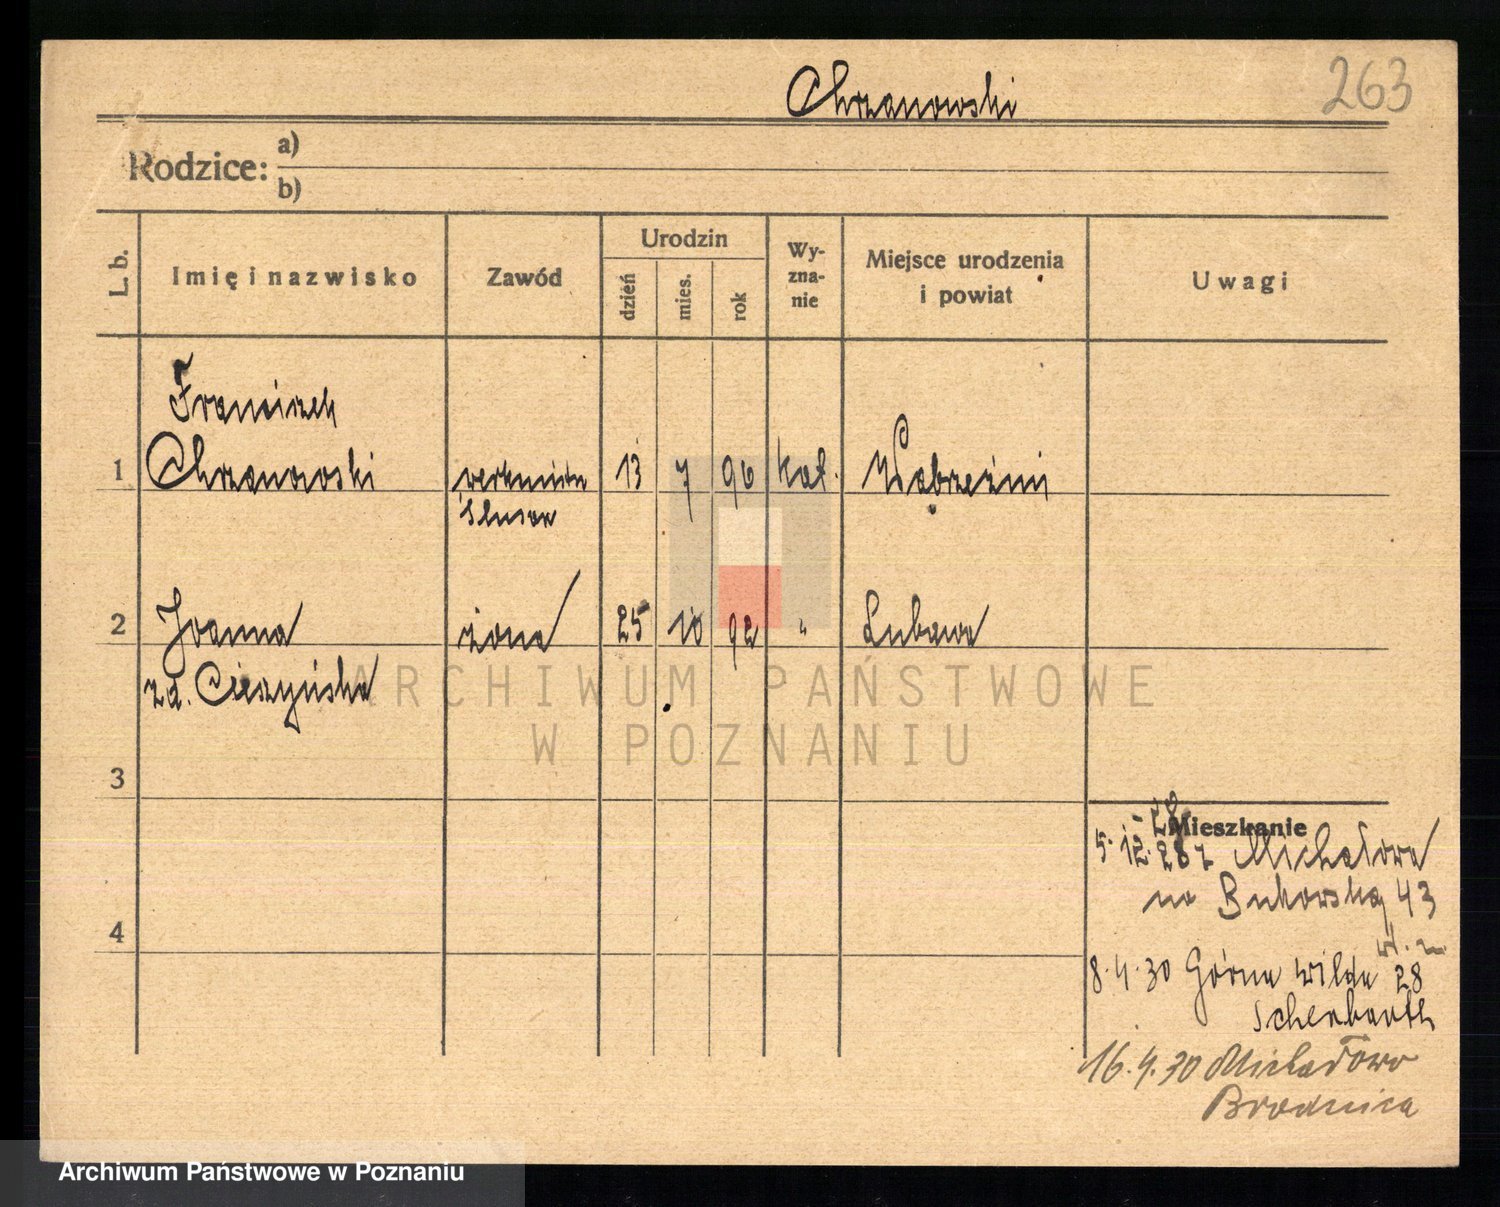 Chrzanowski
263
Rodzice: a)
b)
L. b.
Imię i nazwisko
Zawód
Urodzin
dzień
mies.
rok
Wy-
zna-
nie
Miejsce urodzenia
i powiat
Uwagi
Franciszek
1 Chrzanowski werkmistrz 13 7 96 kat. Wąbrzeźni
ślusarz
2 Joanna żona 25 10 92 " Lubawa
zd. Cieszyńska
3
4
Mieszkanie
5.12.28 z Michałowa
na Bukowską 43
8.4.30 Górna Wilda 28
Scherbarth
16.4.30 Michałowo
Brodnica
ARCHIWUM PAŃSTWOWE
W POZNANIU
Archiwum Państwowe w Poznaniu